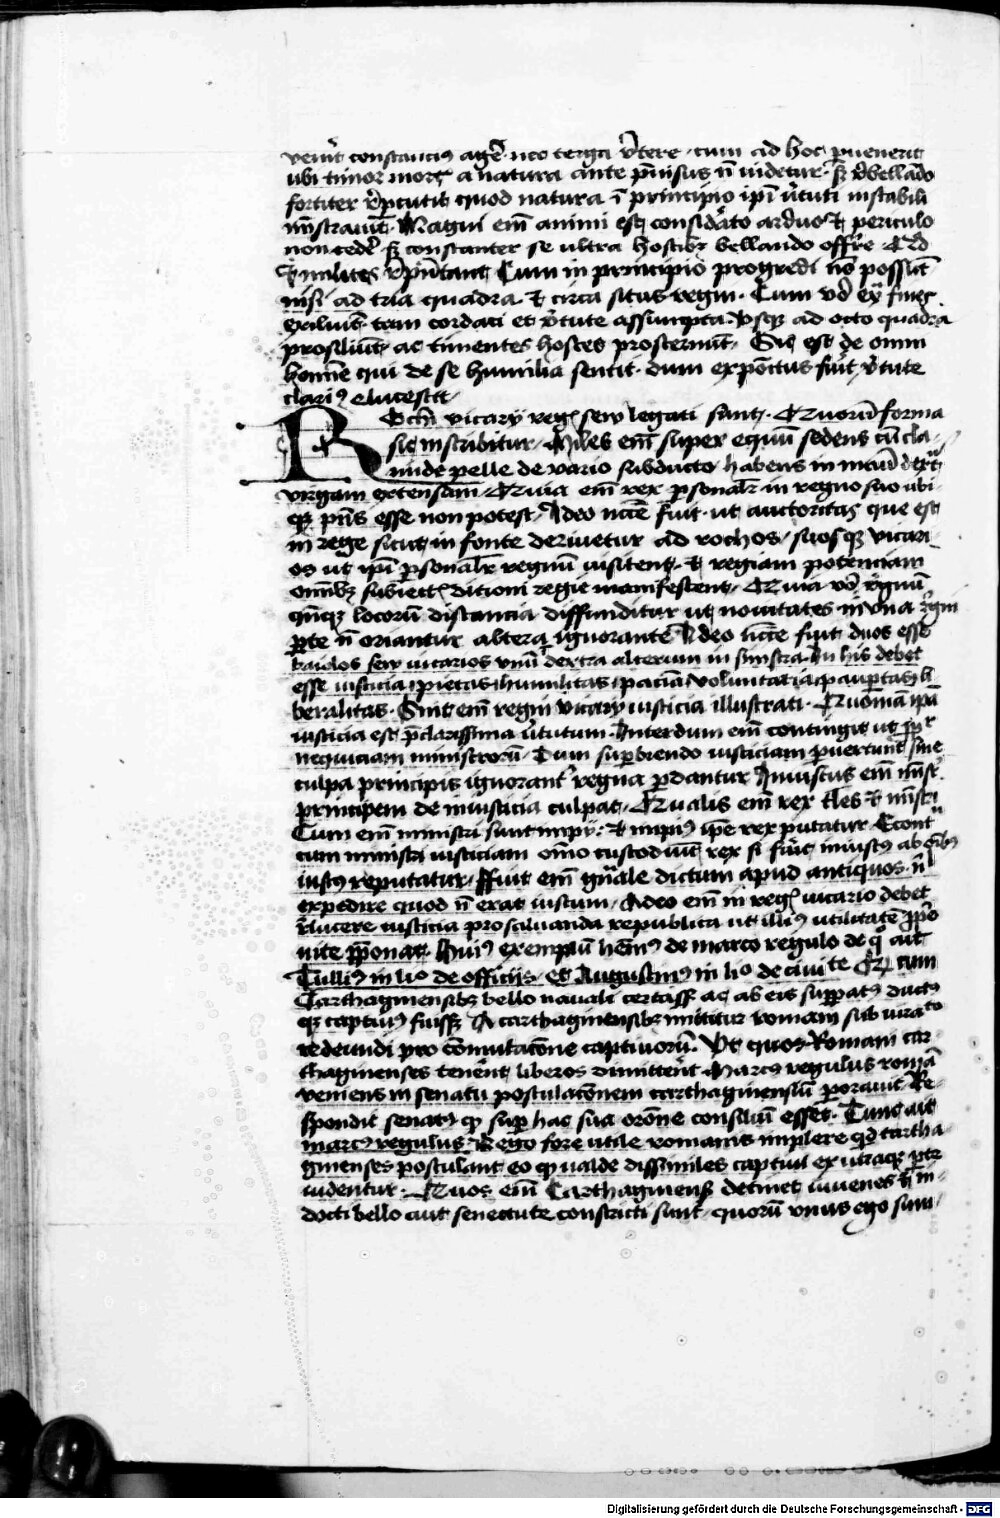 venit constancius agere nec terga vertere · cum ad hoc pervenerit
ubi timor mortis a natura ante previsus non videtur · sed rebellando
fortiter percutit quod natura in principio ipsi virtuti instabili
monstravit · Magni enim animi est considerato arduo et periculo
non cedere sed constanter se ultra hostibus bellando offerre
et milites Cum in principio progredi non possunt
nisi ad tria quadra et circa situs regni · Cum vero extra fines
exiliunt tam cordati et virtute assumpta usque ad octo quadra
prosiliunt ac timentes hostes prosternunt · Sic est de omni
homine qui de se humilia sentit · dum expertus fuerit virtute
clarius elucescit
Rochi vicarii regis seu legati sunt · Quorum forma
sic inscribitur · Miles enim super equum sedens cum cla-
mide pelle de vario subducto habens in manu dextra
virgam extensam Quia enim rex personaliter in regno suo ubi-
que presens esse non potest · Adeo necesse fuit ut auctoritas que est
in rege sicut in fonte derivetur ad rochos / suosque vicari-
os ut ipsi personaliter regnum visitent · et regiam potenciam
omnibus subiectis dicioni regie manifestent · Quia vero regnum
quodque locorum distancia diffunditur ut novitates in una regni
parte non oriantur altera ignorante Adeo necesse fuit duos esse
baiolos seu vicarios unum dextra alterum in sinistra · In his debet
esse iusticia pietas humilitas paciencia voluntaria paupertas li-
beralitas · Sint enim regni vicarii iusticia illustrati · Quoniam ipsa
iusticia est preclarissima virtutum · Interdum enim contingit ut propter
nequiciam ministrorum · Dum superbiendo iusticiam pervertunt sine
culpa principis ignorantis regna perdantur Iniustus enim minister
principem de iniusticia culpat · Qualis enim rex tales et ministri
Cum enim ministri sunt impii · et impius ipse rex putatur Econtra
cum ministri iusticiam omnino custodiunt rex si fuerit iniustus ab omnibus
iustus reputatur · ffuit enim generale dictum apud antiquos · non
expedire quod non erat iustum · Adeo enim in regis vicario debet
relucere iusticia pro salvanda republica ut illius utilitatem proprie
vite preponat · Huius exemplum habemus de marco regulo de quo ait
Tullius in libro de officiis · et Augustinus in libro de civitate Quia cum
Carthaginensibus bello navali certasset ac ab eis superatus ductus
que captivus fuisset A carthaginensibus mittitur romam sub iurato
redeundi pro commutacione captivorum · Ut quos Romani car-
thaginenses tenerent liberos dimitterent Marcus regulus romam
veniens in senatu postulacionem carthaginensium peroravit Re-
spondit senatus quod super hac sua oracione consilium esset · Tunc ait
marcus regulus ego fore utile romanis implere quod cartha-
ginenses postulant eo quod valde dissimiles captivi ex utraque parte
videntur · Quos enim Carthaginenses detinet iuvenes sed in-
docti bello aut senectute constricti sunt · quorum unus ego sum
Digitalisierung gefördert durch die Deutsche Forschungsgemeinschaft - DFG